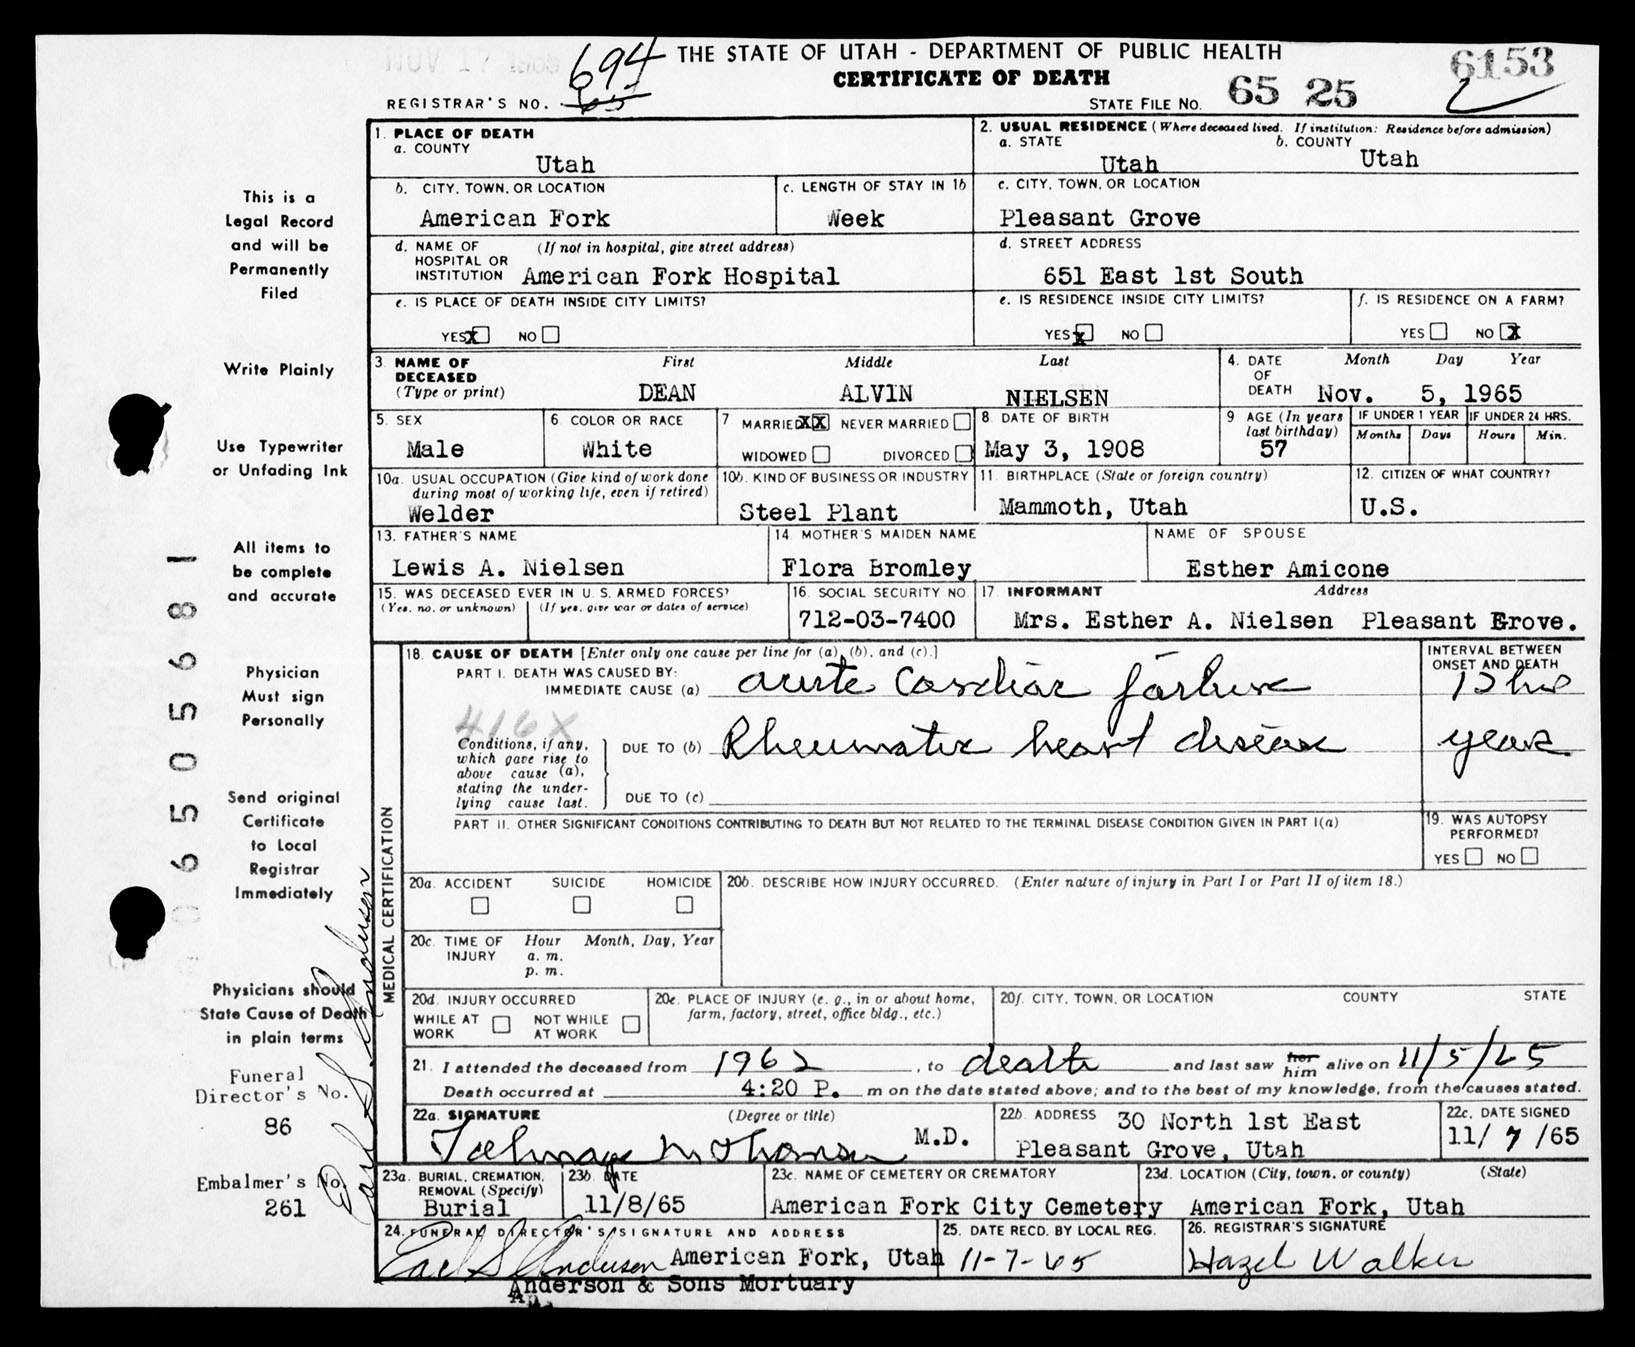 694 THE STATE OF UTAH - DEPARTMENT OF PUBLIC HEALTH 6153
CERTIFICATE OF DEATH
REGISTRAR'S NO. 65 STATE FILE NO. 65 25
1. PLACE OF DEATH
a. COUNTY
Utah
2. USUAL RESIDENCE (Where deceased lived. If institution: Residence before admission)
a. STATE b. COUNTY
Utah Utah
b. CITY, TOWN, OR LOCATION
American Fork
c. LENGTH OF STAY IN 1b
Week
c. CITY, TOWN, OR LOCATION
Pleasant Grove
d. NAME OF (If not in hospital, give street address)
HOSPITAL OR
INSTITUTION American Fork Hospital
d. STREET ADDRESS
651 East 1st South
e. IS PLACE OF DEATH INSIDE CITY LIMITS?
YES X NO
e. IS RESIDENCE INSIDE CITY LIMITS?
YES X NO
f. IS RESIDENCE ON A FARM?
YES NO X
3. NAME OF First Middle Last
DECEASED
(Type or print) DEAN ALVIN NIELSEN
4. DATE Month Day Year
OF
DEATH Nov. 5, 1965
5. SEX
Male
6 COLOR OR RACE
White
7 MARRIED XX NEVER MARRIED
WIDOWED DIVORCED
8 DATE OF BIRTH
May 3, 1908
9 AGE (In years
last birthday)
57
IF UNDER 1 YEAR
Months Days
IF UNDER 24 HRS.
Hours Min.
10a. USUAL OCCUPATION (Give kind of work done
during most of working life, even if retired)
Welder
10b. KIND OF BUSINESS OR INDUSTRY
Steel Plant
11. BIRTHPLACE (State or foreign country)
Mammoth, Utah
12. CITIZEN OF WHAT COUNTRY?
U.S.
13. FATHER'S NAME
Lewis A. Nielsen
14. MOTHER'S MAIDEN NAME
Flora Bromley
NAME OF SPOUSE
Esther Amicone
15. WAS DECEASED EVER IN U.S. ARMED FORCES?
(Yes, no, or unknown) (If yes, give war or dates of service)
16. SOCIAL SECURITY NO.
712-03-7400
17. INFORMANT Address
Mrs. Esther A. Nielsen Pleasant Grove.
MEDICAL CERTIFICATION
18. CAUSE OF DEATH [Enter only one cause per line for (a), (b), and (c).]
PART I. DEATH WAS CAUSED BY:
IMMEDIATE CAUSE (a) acute Cardiac failure
INTERVAL BETWEEN
ONSET AND DEATH
12 hrs
416X
Conditions, if any,
which gave rise to
above cause (a),
stating the under-
lying cause last.
DUE TO (b) Rheumatic heart disease
years
DUE TO (c)
PART II. OTHER SIGNIFICANT CONDITIONS CONTRIBUTING TO DEATH BUT NOT RELATED TO THE TERMINAL DISEASE CONDITION GIVEN IN PART I(a)
19. WAS AUTOPSY
PERFORMED?
YES NO
20a. ACCIDENT SUICIDE HOMICIDE
20b. DESCRIBE HOW INJURY OCCURRED. (Enter nature of injury in Part I or Part II of item 18.)
20c. TIME OF Hour Month, Day, Year
INJURY a. m.
p. m.
20d. INJURY OCCURRED
WHILE AT WORK NOT WHILE AT WORK
20e. PLACE OF INJURY (e. g., in or about home,
farm, factory, street, office bldg., etc.)
20f. CITY, TOWN, OR LOCATION COUNTY STATE
21. I attended the deceased from 1962, to death and last saw her him alive on 11/5/65
Death occurred at 4:20 P. m on the date stated above; and to the best of my knowledge, from the causes stated.
22a. SIGNATURE (Degree or title)
Talmage M Thomsen M.D.
22b. ADDRESS 30 North 1st East
Pleasant Grove, Utah
22c. DATE SIGNED
11/ 7 /65
23a. BURIAL, CREMATION,
REMOVAL (Specify)
Burial
23b. DATE
11/8/65
23c. NAME OF CEMETERY OR CREMATORY
American Fork City Cemetery
23d. LOCATION (City, town, or county) (State)
American Fork, Utah
24. FUNERAL DIRECTOR'S SIGNATURE AND ADDRESS
Earl S Anderson American Fork, Utah
Anderson & Sons Mortuary
25. DATE RECD. BY LOCAL REG.
11-7-65
26. REGISTRAR'S SIGNATURE
Hazel Walker
This is a
Legal Record
and will be
Permanently
Filed
Write Plainly
Use Typewriter
or Unfading Ink
All items to
be complete
and accurate
Physician
Must sign
Personally
Send original
Certificate
to Local
Registrar
Immediately
Physicians should
State Cause of Death
in plain terms
Funeral
Director's No.
86
Embalmer's No.
261
Earl S. Anderson
06505681